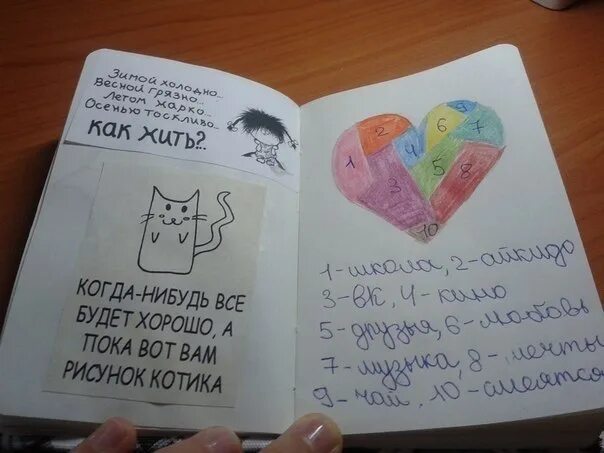 Зимой холодно...
Весной грязно...
Летом жарко...
Осенью тоскливо...
КАК ЖИТЬ?..
КОГДА-НИБУДЬ ВСЕ
БУДЕТ ХОРОШО, А
ПОКА ВОТ ВАМ
РИСУНОК КОТИКА
1 2 3 4 5 6 7 8 9 10
1-школа, 2-айкидо
3-вк, 4-кино
5-друзья, 6-любовь
7-музыка, 8-мечты
9-чай, 10-смеятся